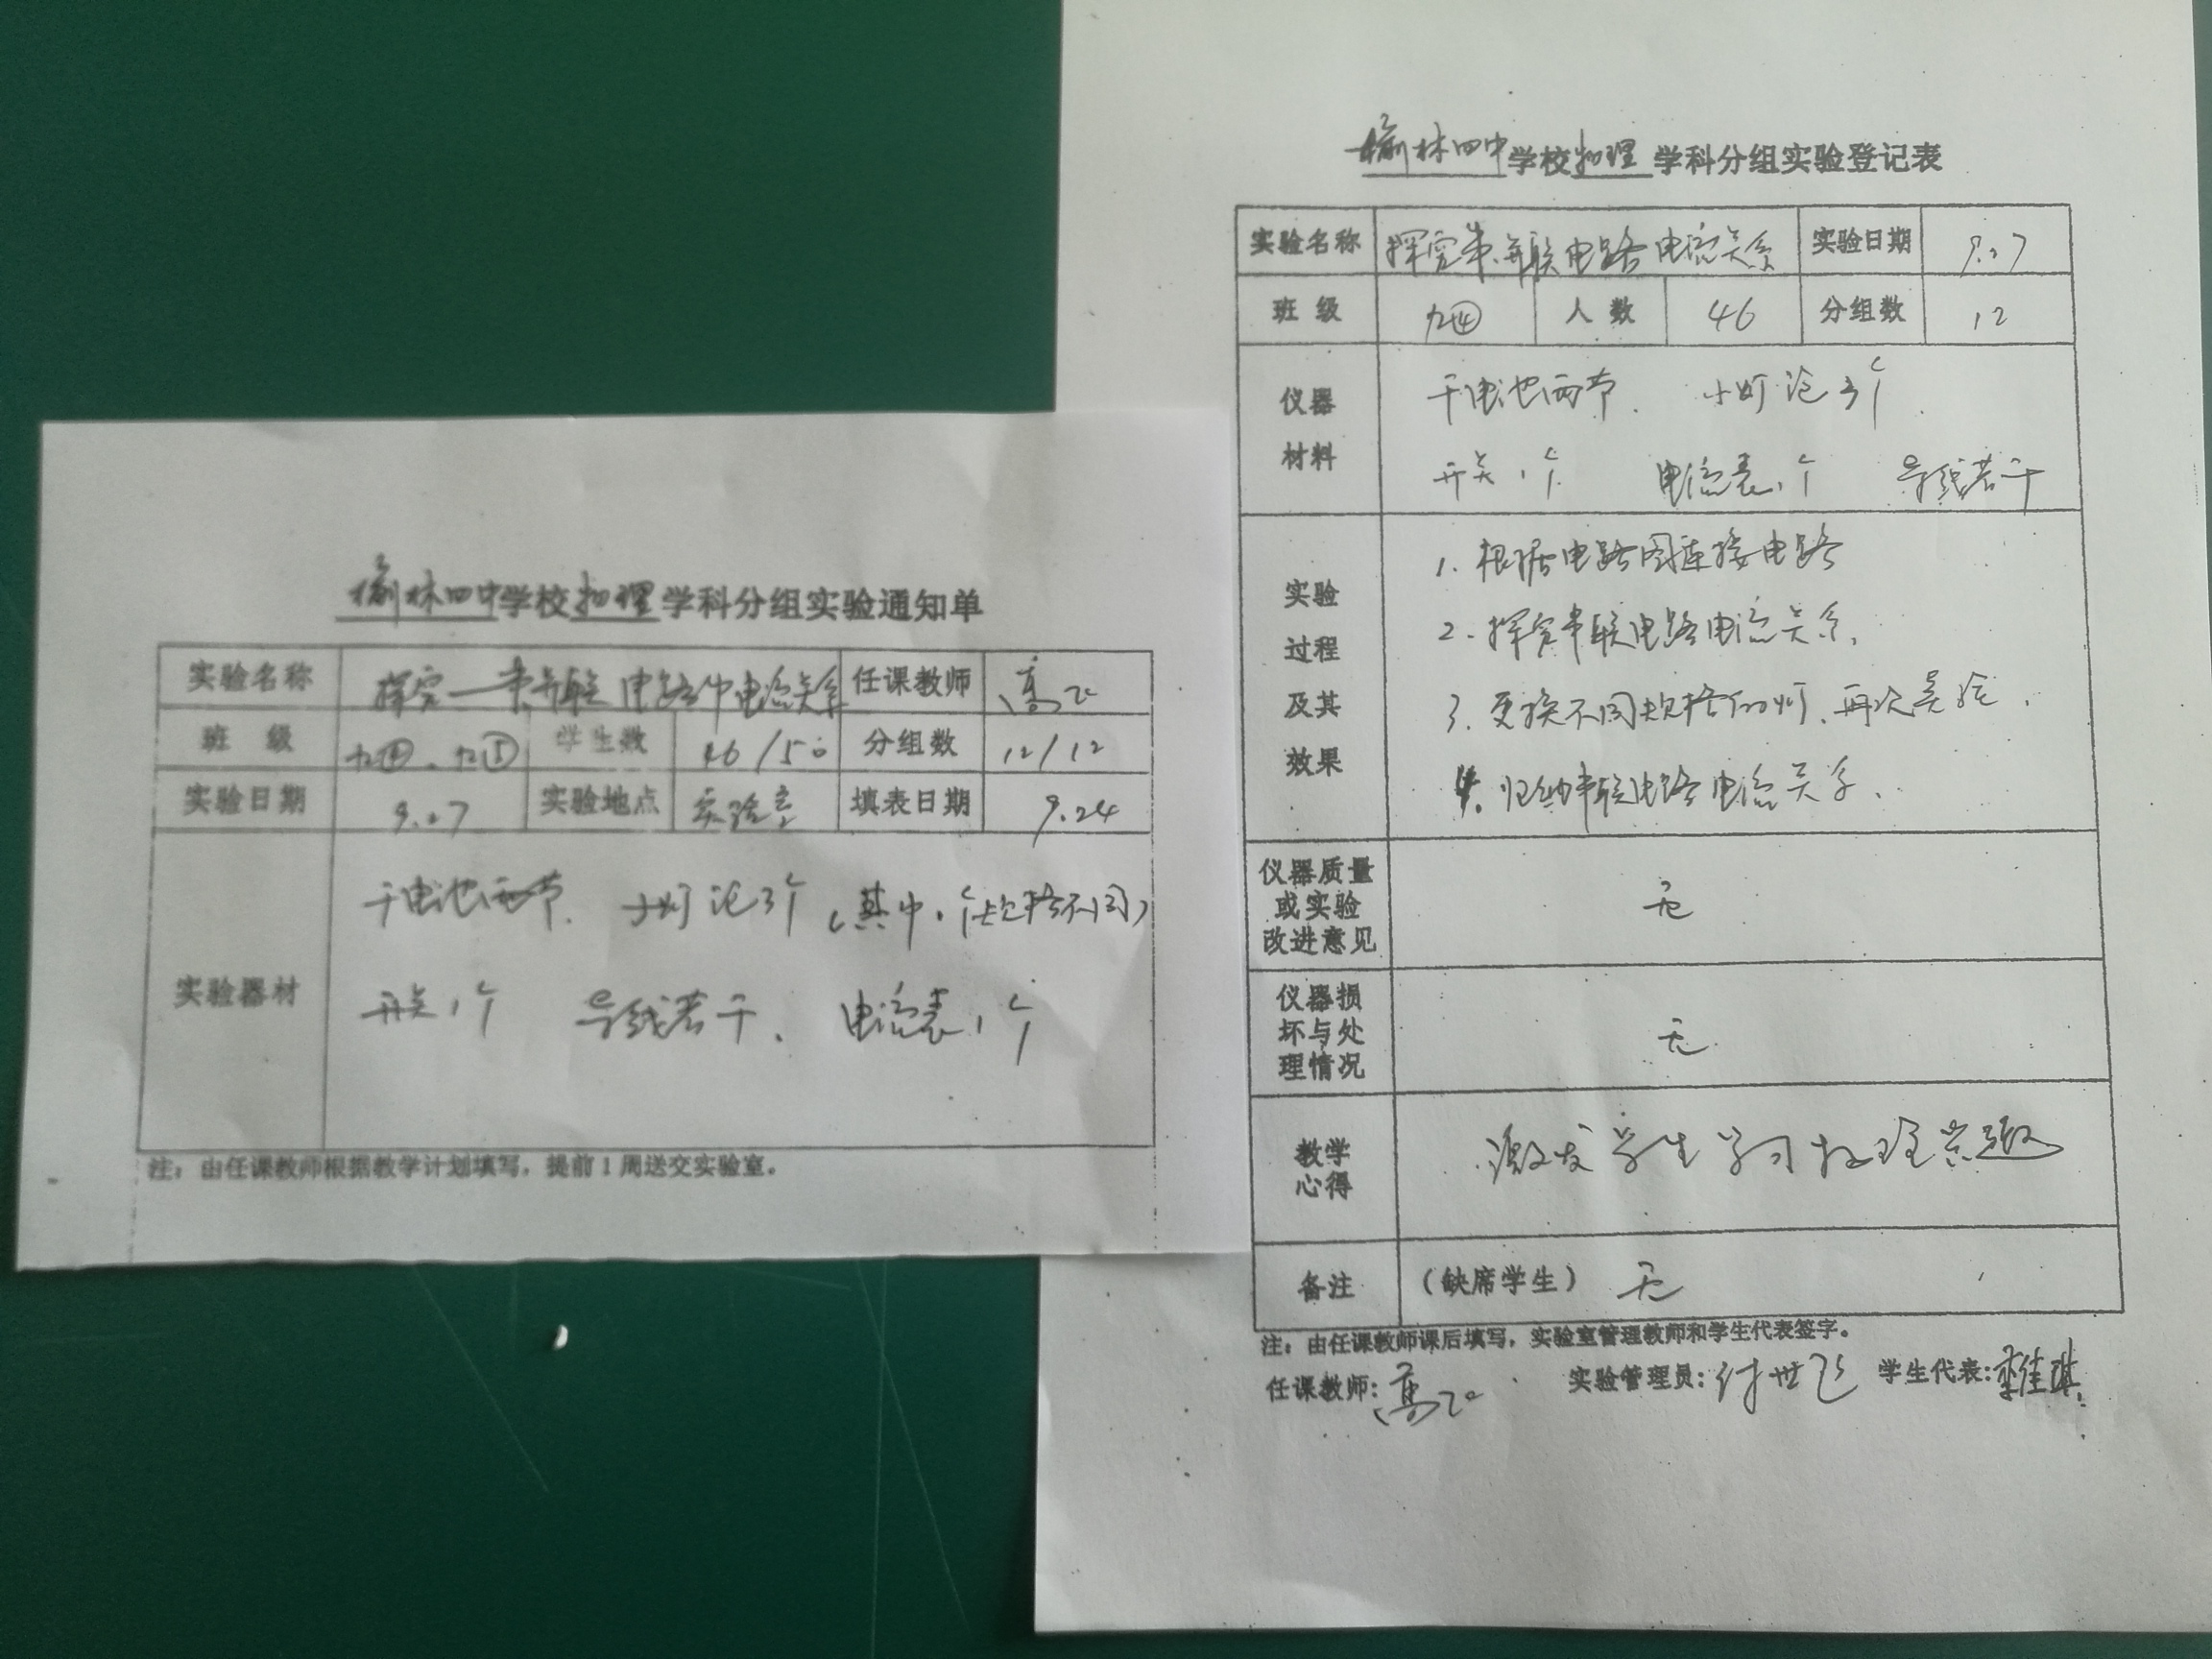 榆林四中学校物理学科分组实验通知单
实验名称 探究一串并联电路中电流关系 任课教师 高
班 级 九④、九⑤ 学生数 46/50 分组数 12/12
实验日期 9.27 实验地点 实验室 填表日期 9.24
实验器材
干电池两节. 小灯泡3个(其中1个规格不同)
开关1个 导线若干. 电流表1个
注：由任课教师根据教学计划填写，提前1周送交实验室。
榆林四中学校物理学科分组实验登记表
实验名称 探究串、并联电路电流关系 实验日期 9.27
班 级 九④ 人 数 46 分组数 12
仪器
材料
干电池两节. 小灯泡3个.
开关1个 电流表1个 导线若干
实验
过程
及其
效果
1. 根据电路图连接电路
2. 探究串联电路电流关系.
3. 更换不同规格的灯、再次实验.
4. 归纳串联电路电流关系.
仪器质量
或实验
改进意见
无
仪器损
坏与处
理情况
无
教学
心得
激发学生学习物理兴趣
备注 （缺席学生） 无
注：由任课教师课后填写，实验室管理教师和学生代表签字。
任课教师: 高 实验管理员: 付世飞 学生代表: 佳琪